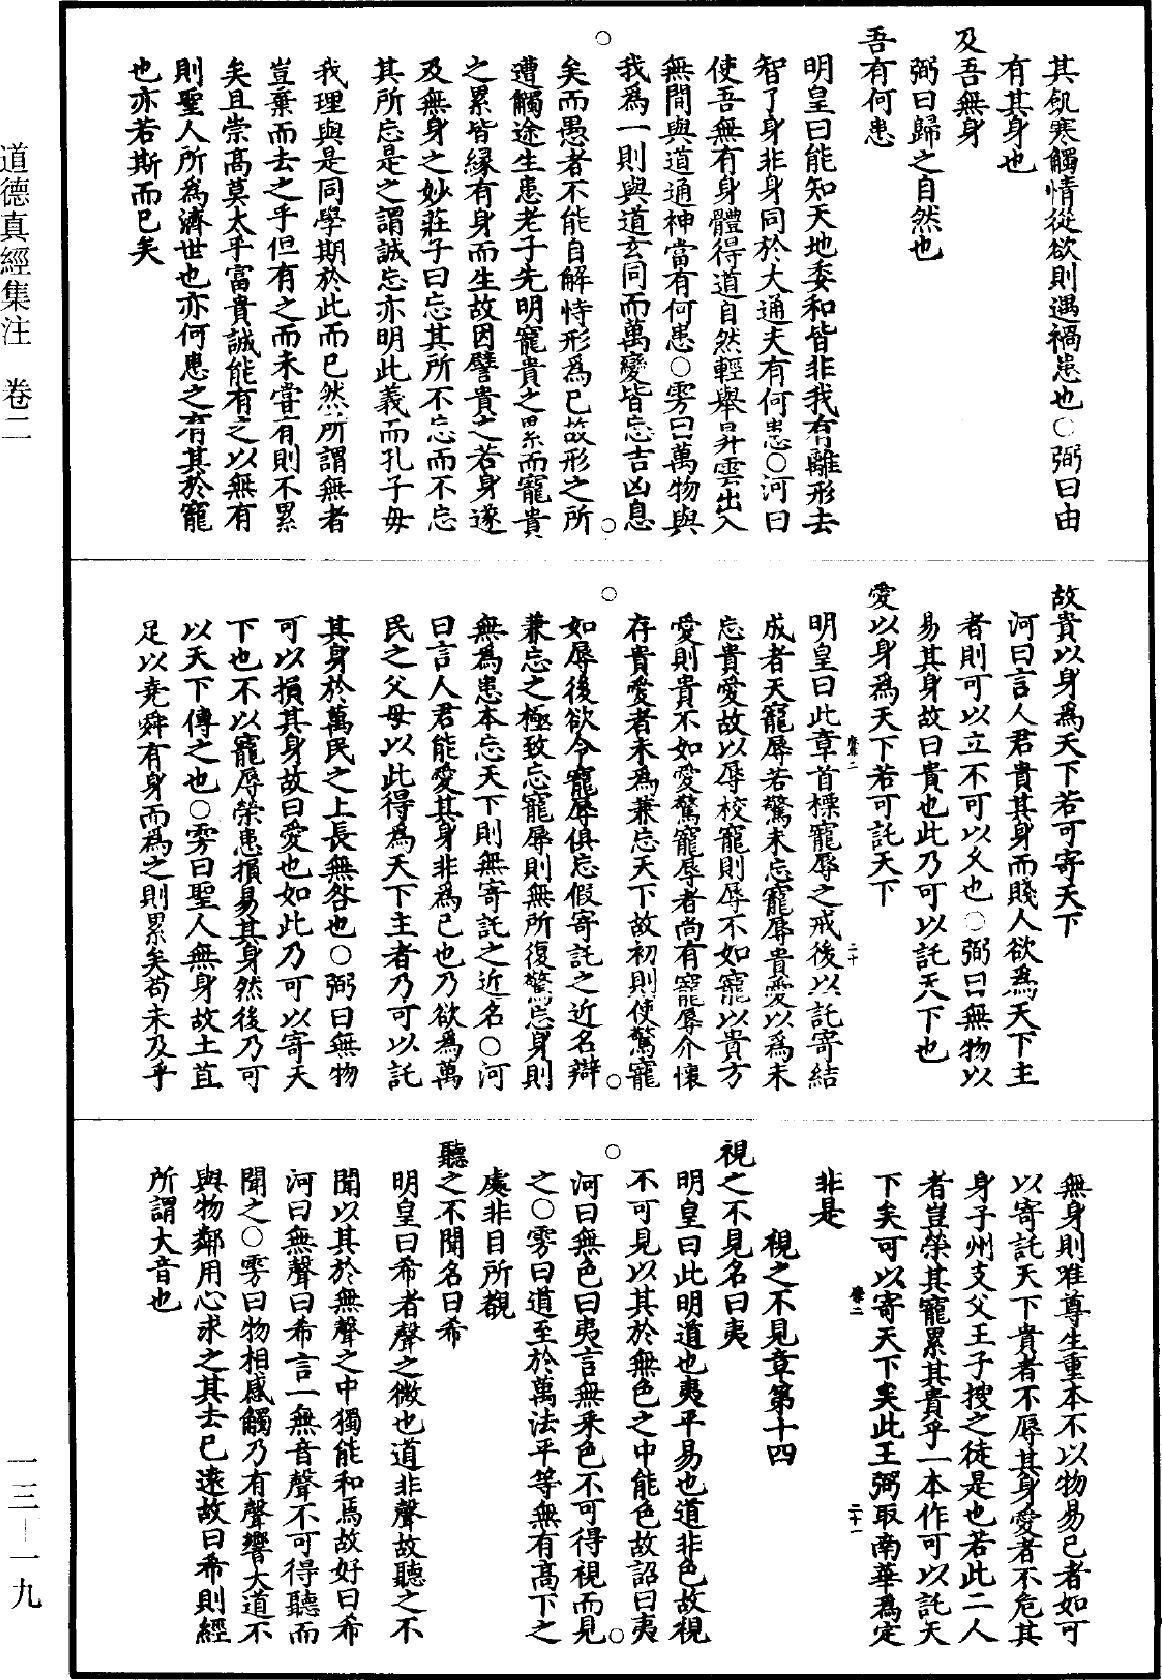 其飢寒觸情從欲則遇禍患也○弼曰由
有其身也
及吾無身
弼曰歸之自然也
吾有何患
明皇曰能知天地委和皆非我有離形去
智了身非身同於大通夫有何患○河曰
使吾無有身體得道自然輕舉昇雲出入
無間與道通神當有何患○雱曰萬物與
我為一則與道玄同而萬變皆忘吉凶息
矣而愚者不能自解恃形為已故形之所
遭觸途生患老子先明寵貴之累而寵貴
之累皆緣有身而生故因譬貴之若身遂
及無身之妙莊子曰忘其所不忘而不忘
其所忘是之謂誠忘亦明此義而孔子毋
我理與是同學期於此而已然所謂無者
豈棄而去之乎但有之而未嘗有則不累
矣且崇高莫大乎富貴誠能有之以無有
則聖人所為濟世也亦何患之有其於寵
也亦若斯而已矣
故貴以身為天下若可寄天下
河曰言人君貴其身而賤人欲為天下主
者則可以立不可以久也○弼曰無物以
易其身故曰貴也此乃可以託天下也
愛以身為天下若可託天下
明皇曰此章首標寵辱之戒後以託寄結
成者天寵辱若驚未忘寵辱貴愛以為未
忘貴愛故以辱校寵則辱不如寵以貴方
愛則貴不如愛驚寵辱者尚有寵辱介懷
存貴愛者未為兼忘天下故初則使驚寵
如辱後欲令寵辱俱忘假寄託之近名辯
兼忘之極致忘寵辱則無所復驚忘身則
無為患本忘天下則無寄託之近名○河
曰言人君能愛其身非為已也乃欲為萬
民之父母以此得為天下主者乃可以託
其身於萬民之上長無咎也○弼曰無物
可以損其身故曰愛也如此乃可以寄天
下也不以寵辱榮患損易其身然後乃可
以天下傳之也○雱曰聖人無身故土苴
足以堯舜有身而為之則累矣苟未及乎
無身則唯尊生重本不以物易己者如可
以寄託天下貴者不辱其身愛者不危其
身子州支父王子搜之徒是也若此二人
者豈榮其寵累其貴乎一本作可以託天
下矣可以寄天下矣此王弼取南華為定
非是
視之不見章第十四
視之不見名曰夷
明皇曰此明道也夷平易也道非色故視
不可見以其於無色之中能色故詔曰夷
河曰無色曰夷言無采色不可得視而見
之○雱曰道至於萬法平等無有高下之
處非目所覩
聽之不聞名曰希
明皇曰希者聲之微也道非聲故聽之不
聞以其於無聲之中獨能和焉故好曰希
河曰無聲曰希言一無音聲不可得聽而
聞之○雱曰物相感觸乃有聲響大道不
與物鄰用心求之其去已遠故曰希則經
所謂大音也
道德真經集注 卷二
一三-一九